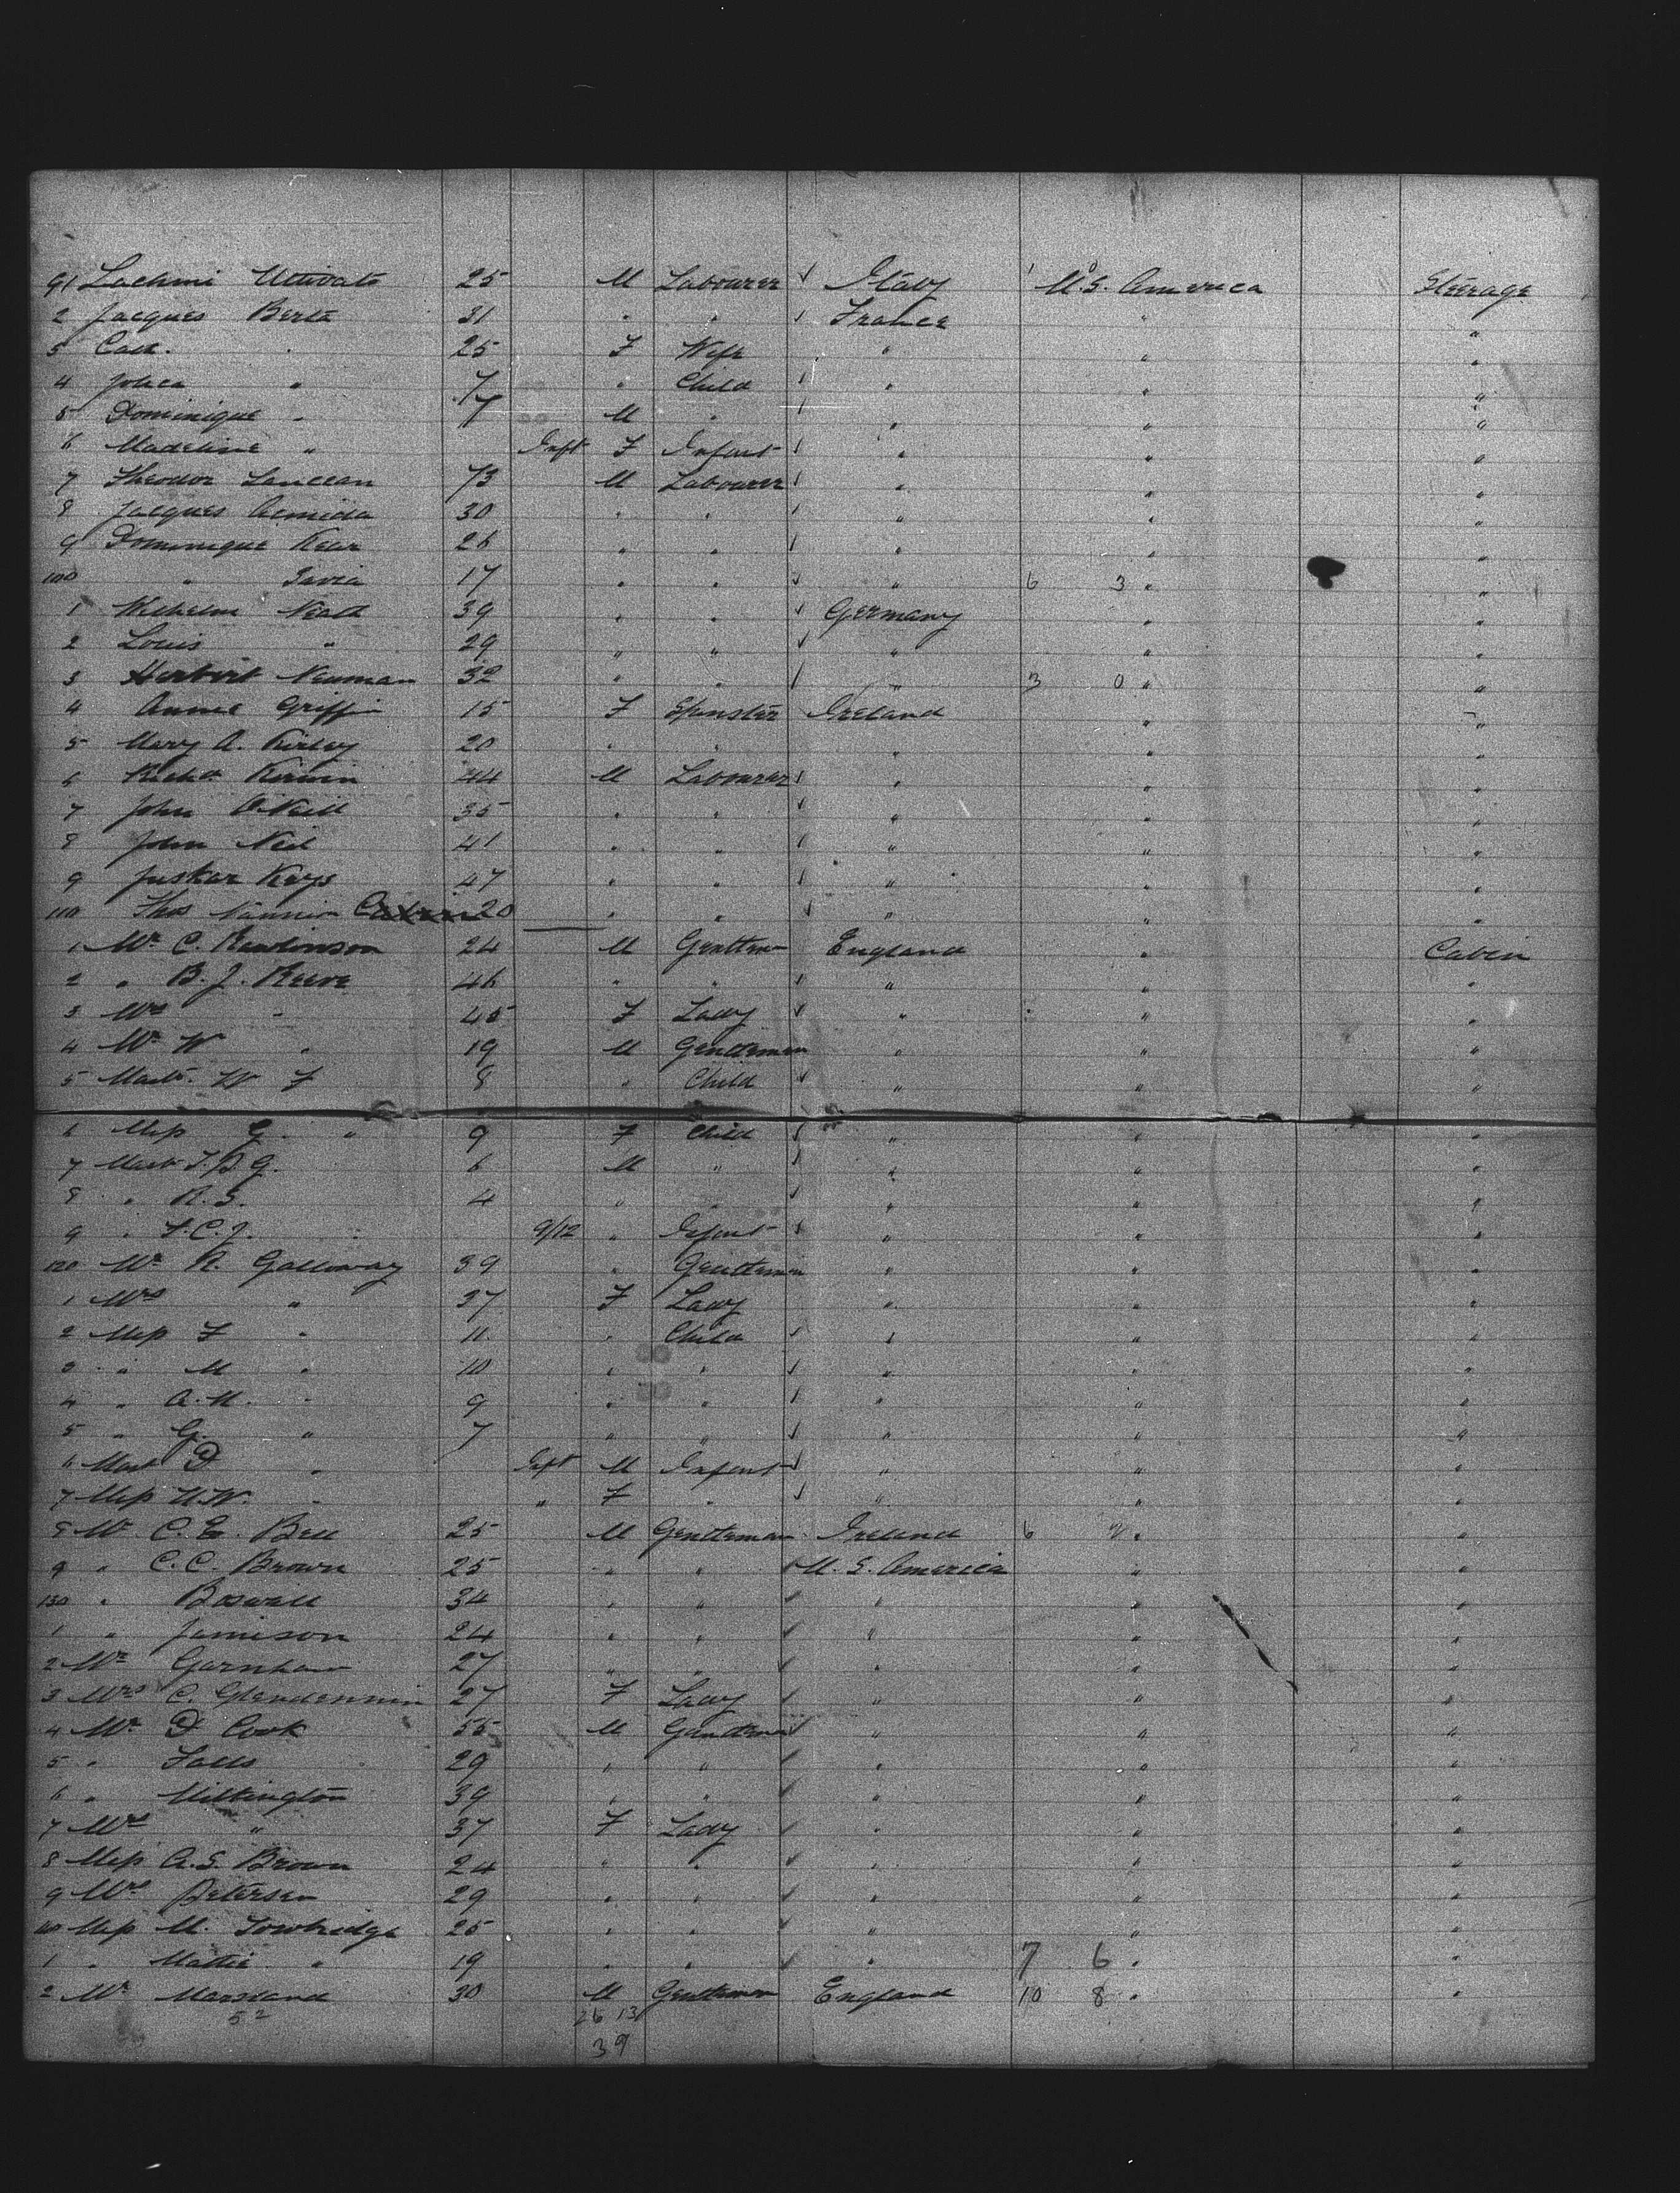 91 Lachmi Uttivato 25 M Labourer ✓ Italy U.S. America Steerage
2 Jacques Berta 31 " " ✓ France " "
3 Cath. " 25 F Wife " " "
4 " 7 " Child ✓ " " "
5 Dominique " 7 M " ✓ " " "
6 Madeline " Inft F Infant ✓ " " "
7 Theodor 73 M Labourer ✓ " " "
8 Jacques 30 " " ✓ " " "
9 Dominique Kear 26 " " ✓ " " "
100 " 17 " " ✓ " 6 3 " "
1 Wilhelm 39 " " ✓ Germany " "
2 Louis " 29 " " ✓ " " "
3 Herbert Neuman 32 " " ✓ " 3 0 " "
4 Annie Griffin 15 F Spinster Ireland " "
5 Mary A. Kirley 20 " " " " "
6 Richd Kirwin 44 M Labourer ✓ " " "
7 John O'Neill 35 " " ✓ " " "
8 John Neil 41 " " ✓ " " "
9 Keys 47 " " ✓ " " "
110 Thos 20 " " ✓ " " "
1 Mr C. Rawlinson 24 M Gentlem England " Cabin
2 " B. J. Reeve 46 " " ✓ " " "
3 Mrs " 45 F Lady ✓ " " "
4 Mr W " 19 M Gentleman " " "
5 Mastr. W F 8 " Child ✓ " " "
6 Miss G. " 9 F Child ✓ " " "
7 Mastr T. B. G. 6 M " ✓ " " "
8 " R. S. 4 " " ✓ " " "
9 " F. C. J. 9/12 " Infant ✓ " " "
120 Mr R. Galloway 39 " Gentleman " " "
1 Mrs " 37 F Lady " " "
2 Miss F " 11 " Child ✓ " " "
3 " M " 10 " " ✓ " " "
4 " A. M. " 9 " " ✓ " " "
5 " G. " 7 " " ✓ " " "
6 Mast D " Inft M Infant ✓ " " "
7 Miss U. W. " " F " ✓ " " "
8 Mr C. E. Bell 25 M Gentleman Ireland 6 2 " "
9 " C. C. Brown 25 " " ✓ U. S. America " "
130 " Boswill 34 " " ✓ " " "
1 " Jamieson 24 " " ✓ " " "
2 Mr Garnham 27 " " ✓ " " "
3 Mrs C. Glendennin 27 F Lady ✓ " " "
4 Mr D Cook 55 M Gentleman ✓ " " "
5 " Falls 29 " " ✓ " " "
6 " Millington 39 " " ✓ " " "
7 Mrs " 37 F Lady ✓ " " "
8 Miss A. S. Brown 24 " " ✓ " " "
9 Mrs Petersen 29 " " ✓ " " "
140 Miss M. Towbridge 25 " " ✓ " " "
1 " Mattie " 19 " " ✓ " 7 6 " "
2 Mr Marsland 30 M Gentleman England 10 8 " "
52 26 13
39